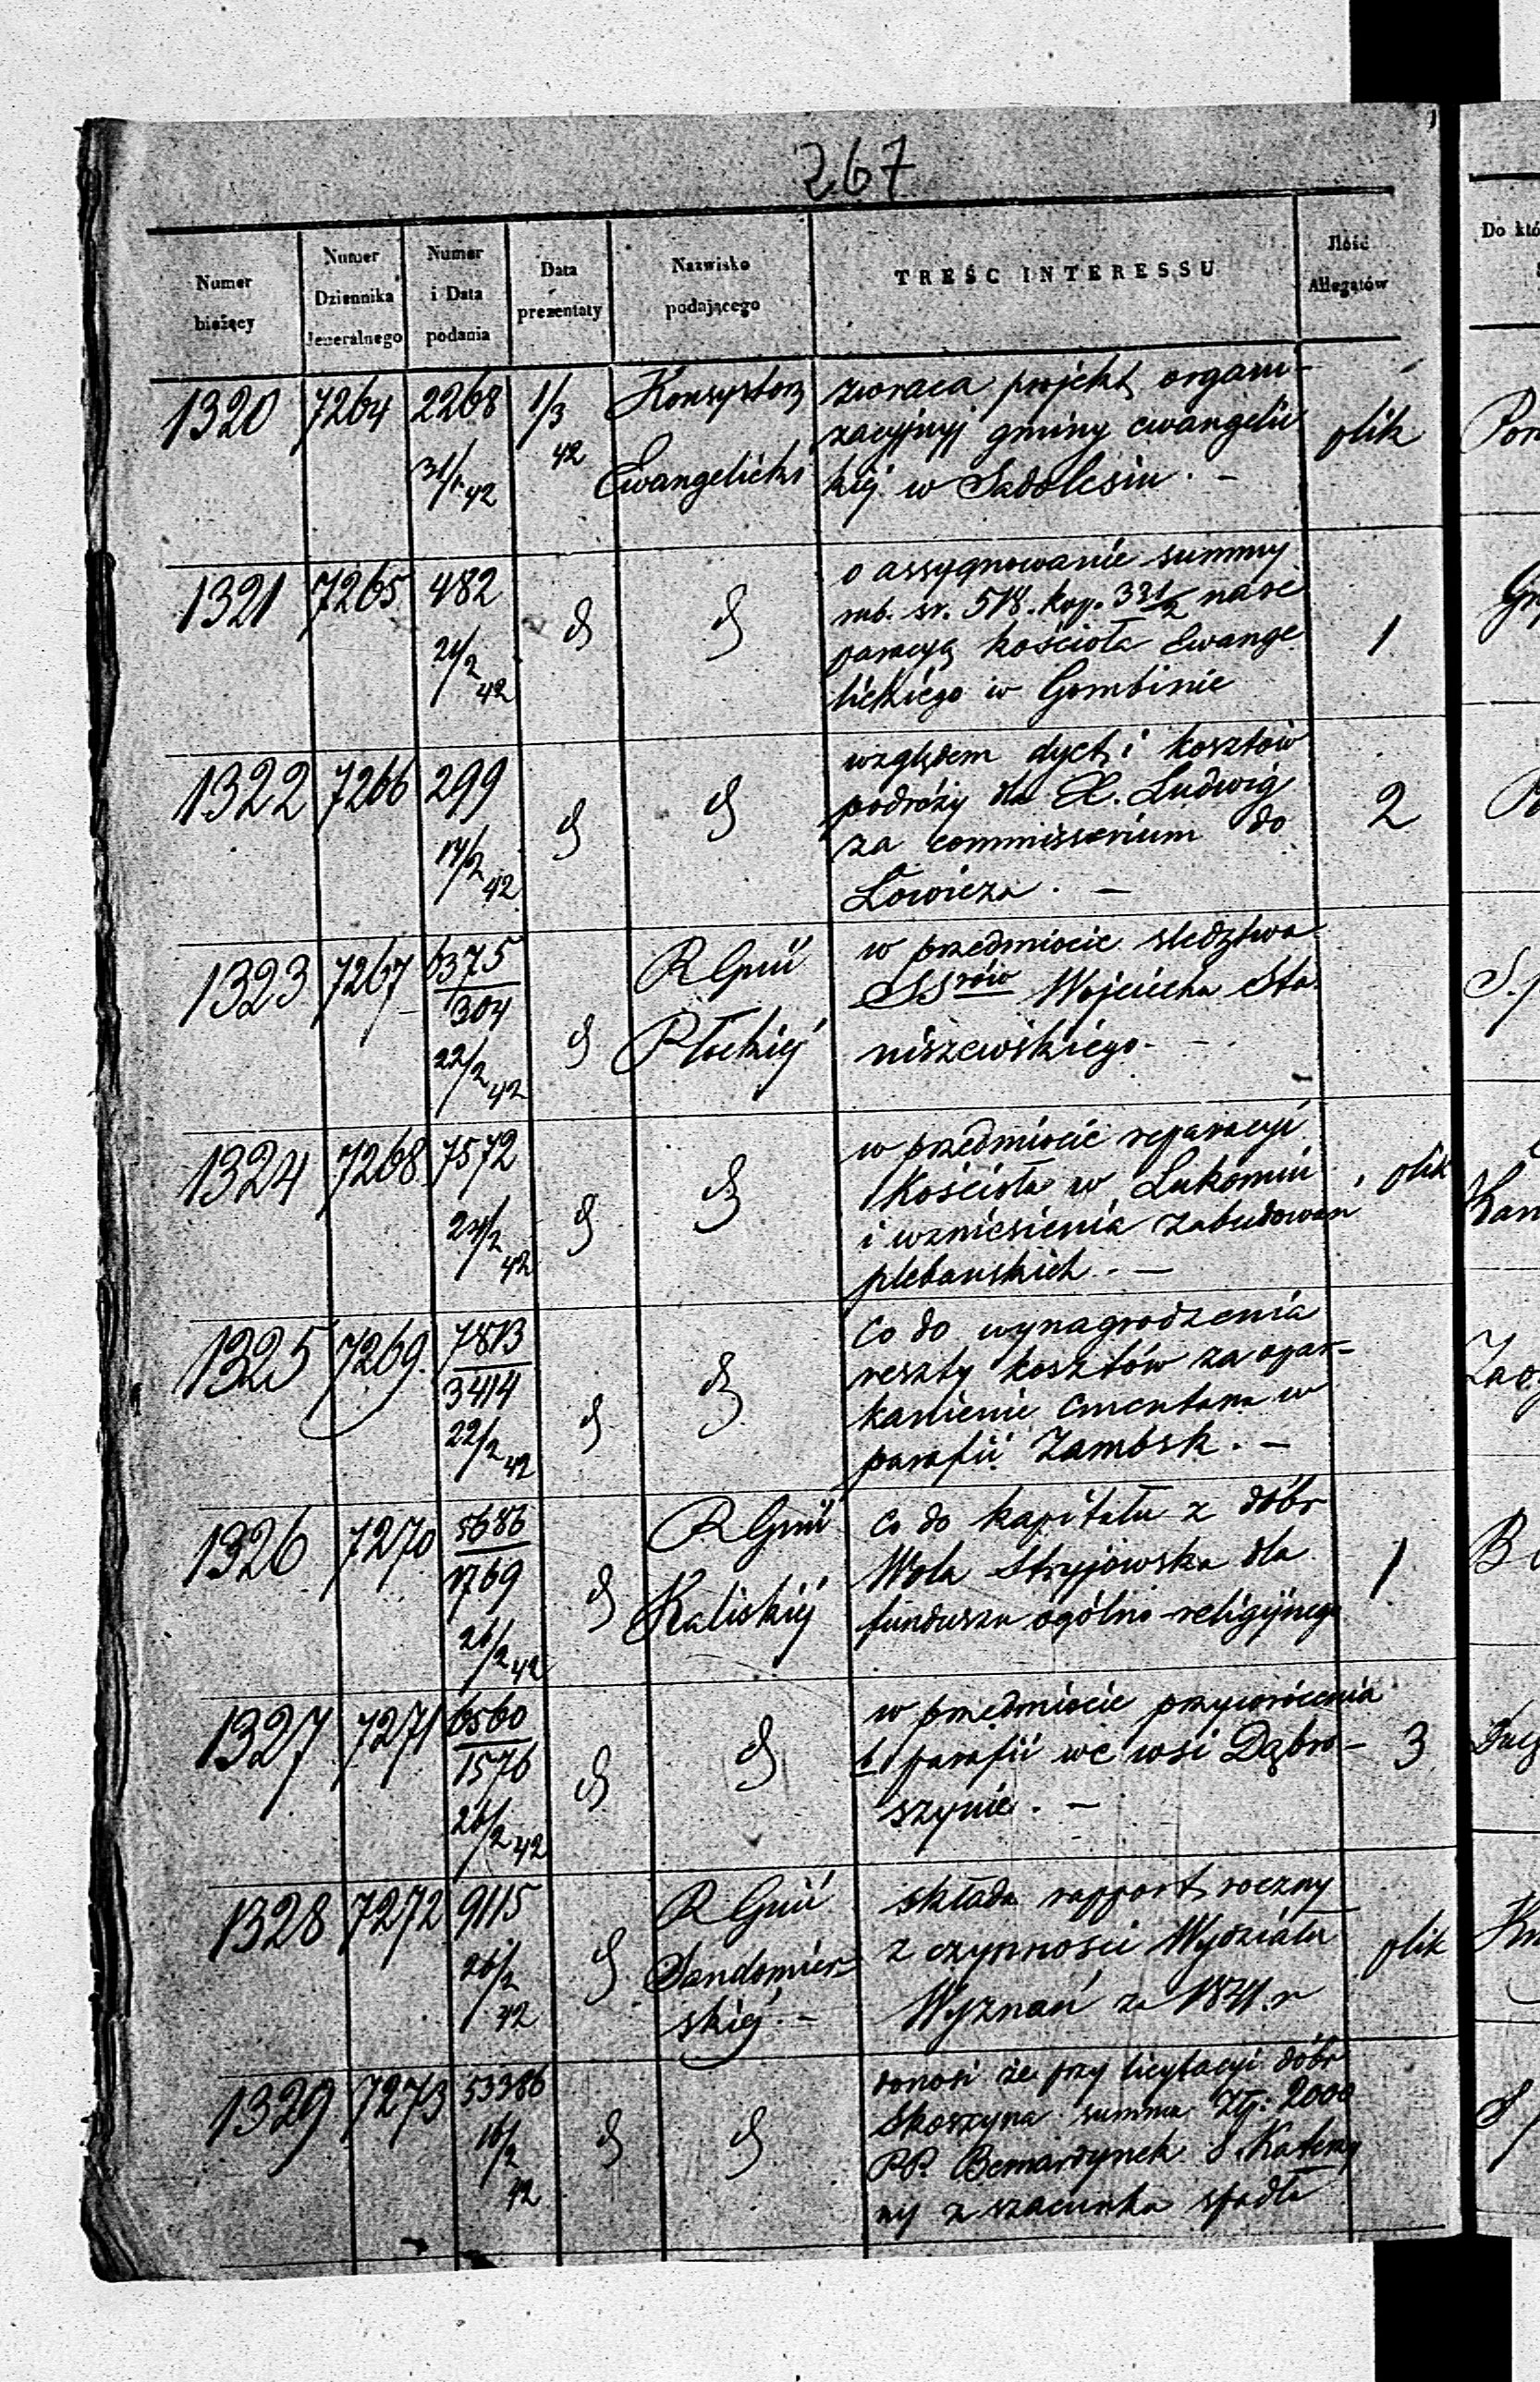 267
Numer bieżący
Numer Dziennika Jeneralnego
Numer i Data podania
Data prezentaty
Nazwisko podającego
TREŚC INTERESSU
Ilość Allegatów
Do któ
1320 7264 2268 31/1 42 1/3 42 Konsystorz Ewangelicki
zwraca projekt organi-
zacyjnyj gminy ewangelic
kiej w Sadolesiu. —
plik
1321 7265 482 21/2 42 d d
o assygnowanie summy
rub. sr. 518. kop. 33 1/2 na re
paracyą kościoła Ewange
lickiego w Gombinie
1
1322 7266 299 14/2 42 d d
względem dyet i kosztów
podróży dla X. Ludwig
za commissorium do
Łowicza. —
2
1323 7267 6375/304 22/2 42 d R Gnii Płockiej
w przedmiocie sledztwa
SSrów Wojciecha Sta
niszewskiego. —
1324 7268 7572 24/2 42 d d
w przedmiocie reparacyi
Kościoła w Lukomiu
i wzniesienia zabudowan
plebanskich. —
plik
Kan
1325 7269. 7813/3414 22/2 42 d d
Co do wynagrodzenia
reszty kosztów za opar-
kanienie cmentarza w
parafii Zambsk. —
1326 7270 5686/1769 26/2 42 d R Gnii Kaliskiej
Co do kapitału z dóbr
Wola Stryjowska dla
funduszu ogólno-religijnego
1
1327 7271 6560/1576 26/2 42 d d
w przedmiocie przywrócenia
b. parafii we wsi Dąbro-
szynie. —
3
1328 7272 9115 26/2 42 d R Gnii Sandomier-
skiej. —
składa rapport roczny
z czynności Wydziału
Wyznań za 1841. r
plik
1329 7273 53386 16/2 42 d d
donosi że przy licytacyi dóbr
Skoszyna summa Złp. 2000
PP. Bernardynek S. Katarzy
ny z szacunku spadła